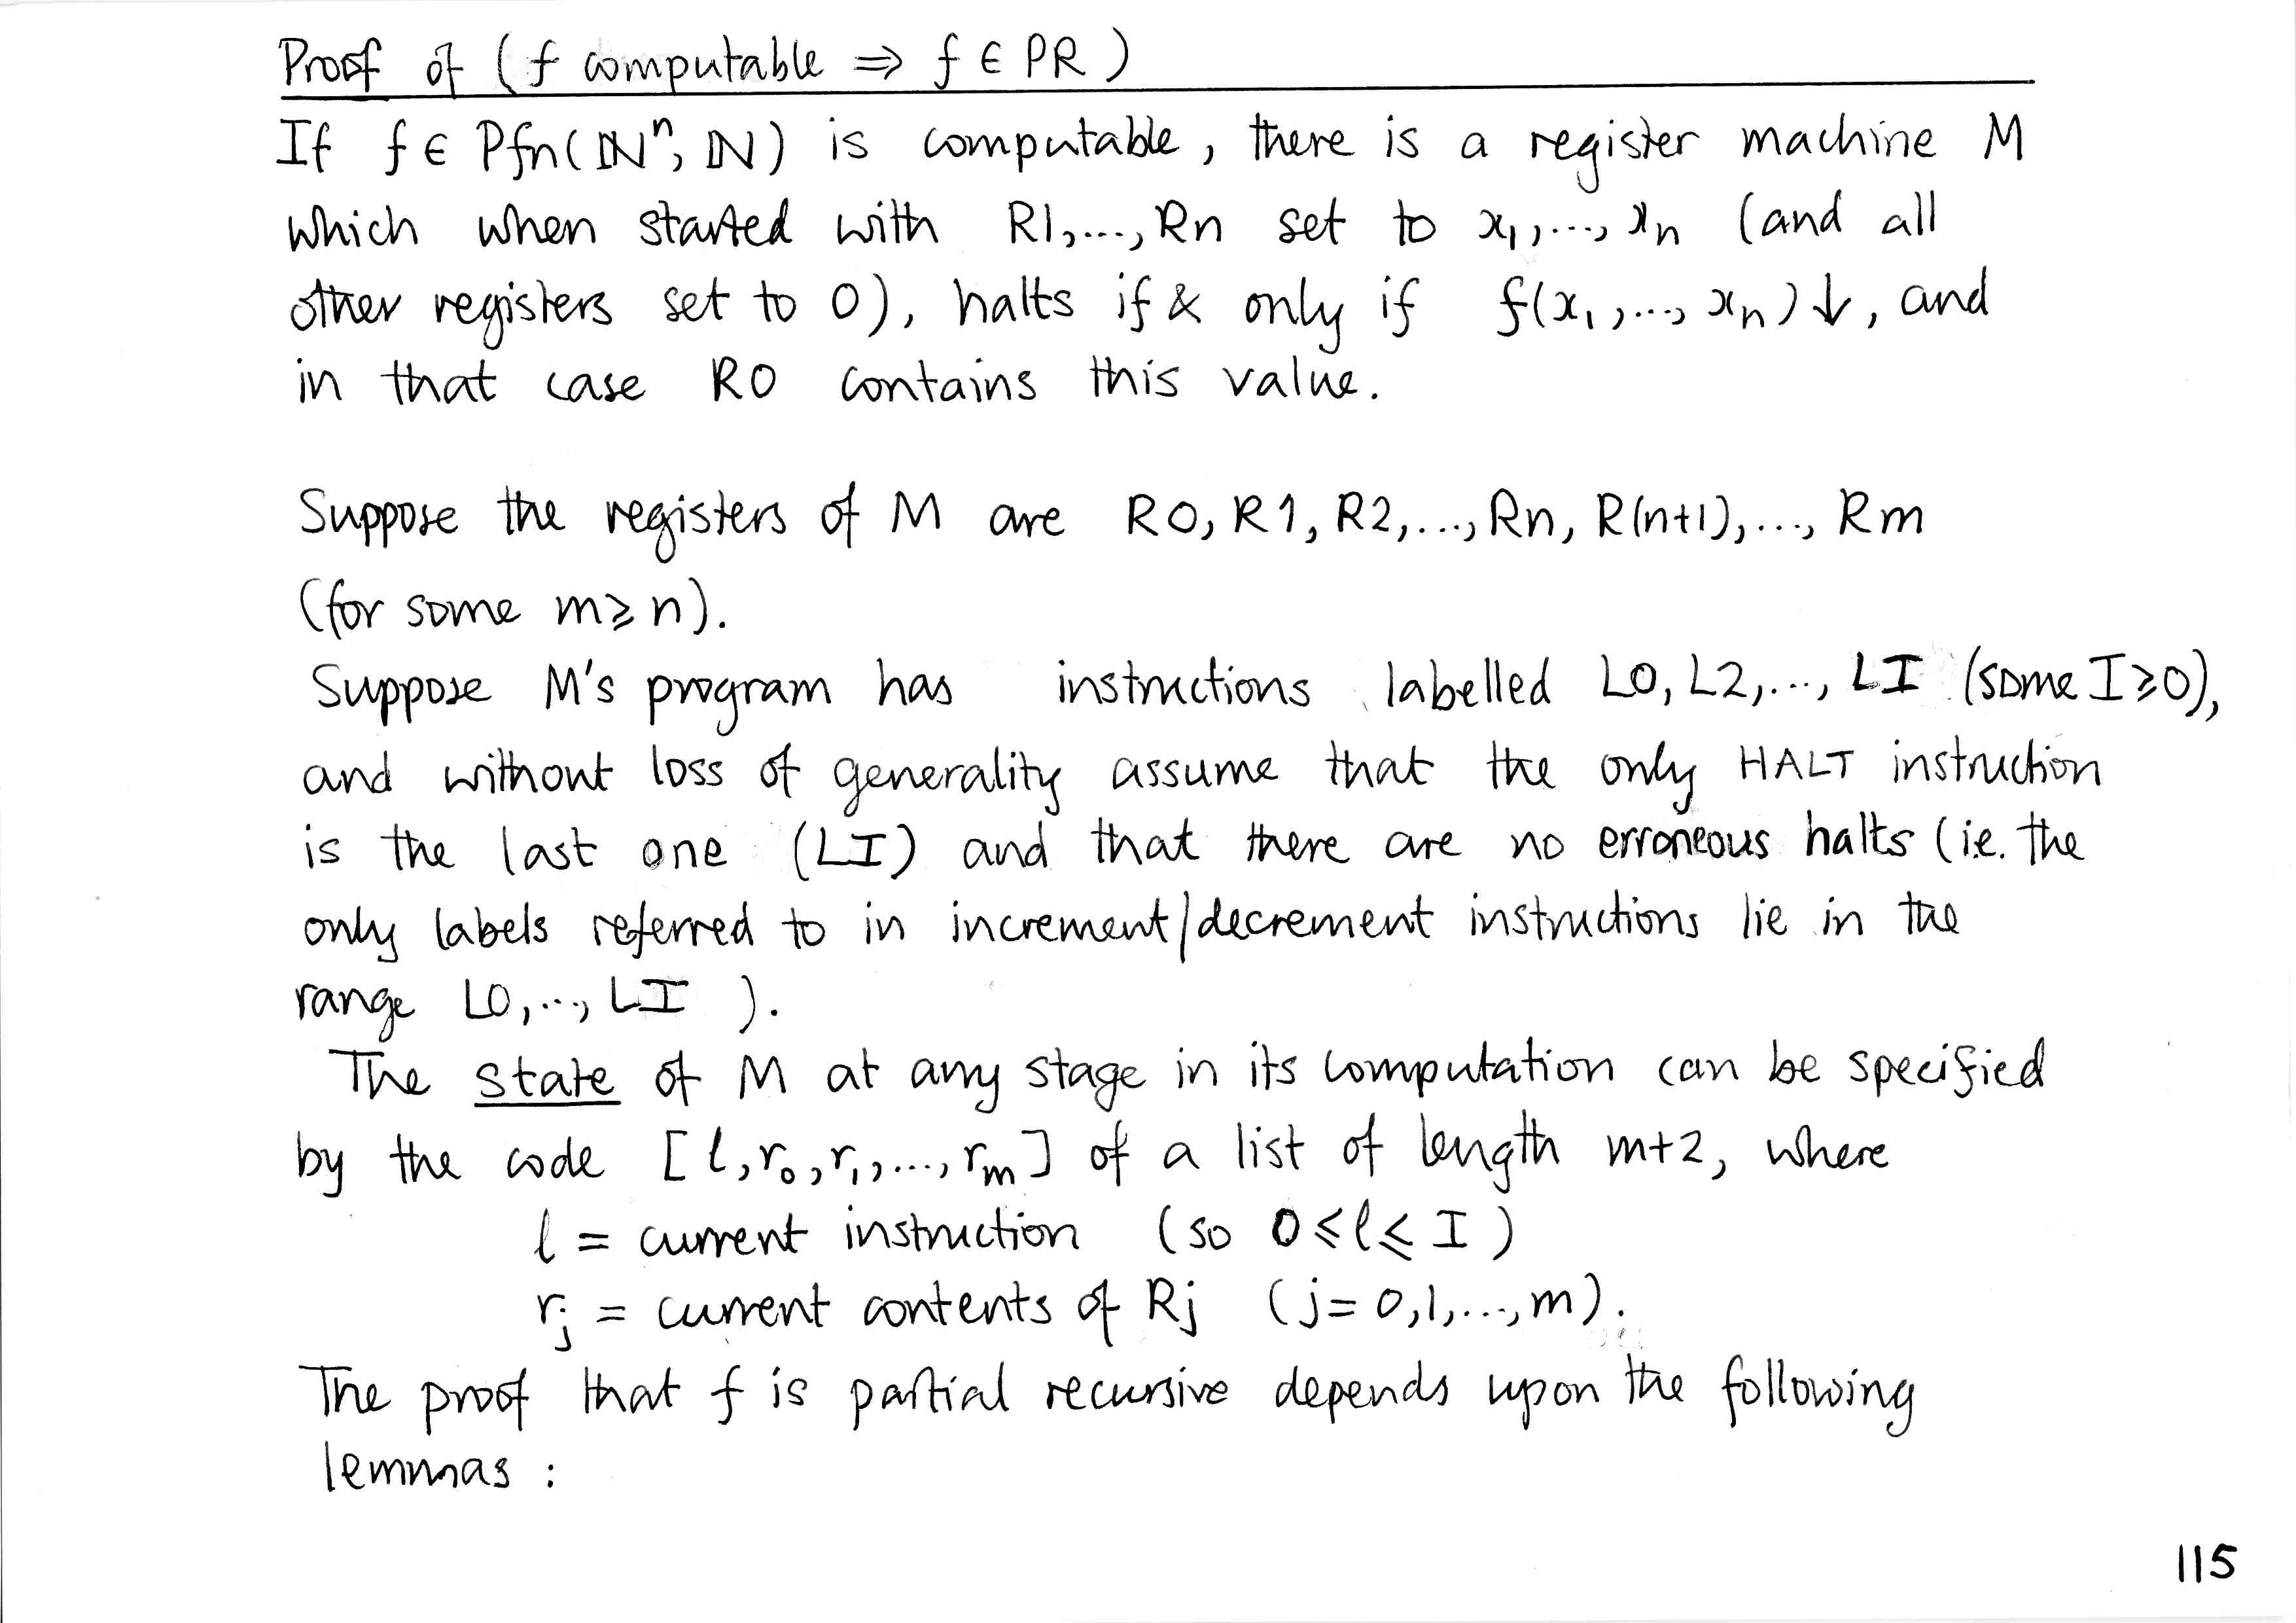 Proof of (f computable ⇒ f ∈ PR)
If f ∈ Pfn(ℕⁿ, ℕ) is computable, there is a register machine M
which when started with R1,..., Rn set to x₁,..., xₙ (and all
other registers set to 0), halts if & only if f(x₁,..., xₙ)↓, and
in that case R0 contains this value.
Suppose the registers of M are R0, R1, R2,..., Rn, R(n+1),..., Rm
(for some m ⩾ n).
Suppose M's program has instructions labelled L0, L2,..., LI (some I ⩾ 0),
and without loss of generality assume that the only HALT instruction
is the last one (LI) and that there are no erroneous halts (i.e. the
only labels referred to in increment/decrement instructions lie in the
range L0,..., LI ).
The state of M at any stage in its computation can be specified
by the code [l, r₀, r₁,..., rₘ] of a list of length m+2, where
l = current instruction (so 0 ⩽ l ⩽ I)
rⱼ = current contents of Rj (j = 0,1,..., m).
The proof that f is partial recursive depends upon the following
lemmas :
115